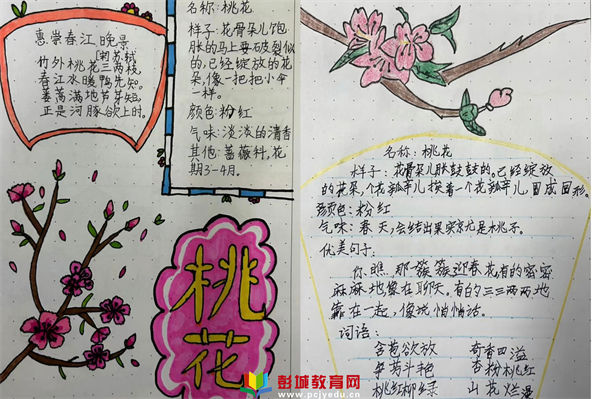 惠崇春江晚景
[宋]苏轼
竹外桃花三两枝,
春江水暖鸭先知。
蒌蒿满地芦芽短,
正是河豚欲上时。
名称:桃花
样子:花骨朵儿饱
胀的马上要破裂似
的,已经绽放的花
朵,像一把把小伞
一样。
颜色:粉红
气味:淡淡的清香
其他:蔷薇科,花
期3-4月。
桃花
名称:桃花
样子:花骨朵儿胀鼓鼓的。已经绽放
的花朵,个花瓣儿挨着一个花瓣儿,围成圆形。
颜色:粉红
气味:春天,会结出果实尤是水桃子。
优美句子:
你瞧,那一簇簇迎春花有的密密
麻麻地像在聊天,有的三三两两地
靠在一起,像说悄悄话。
词语:
含苞欲放 奇香四溢
争芳斗艳 杏粉桃红
桃红柳绿 山花烂漫
彭城教育网
www.pcjyedu.cn